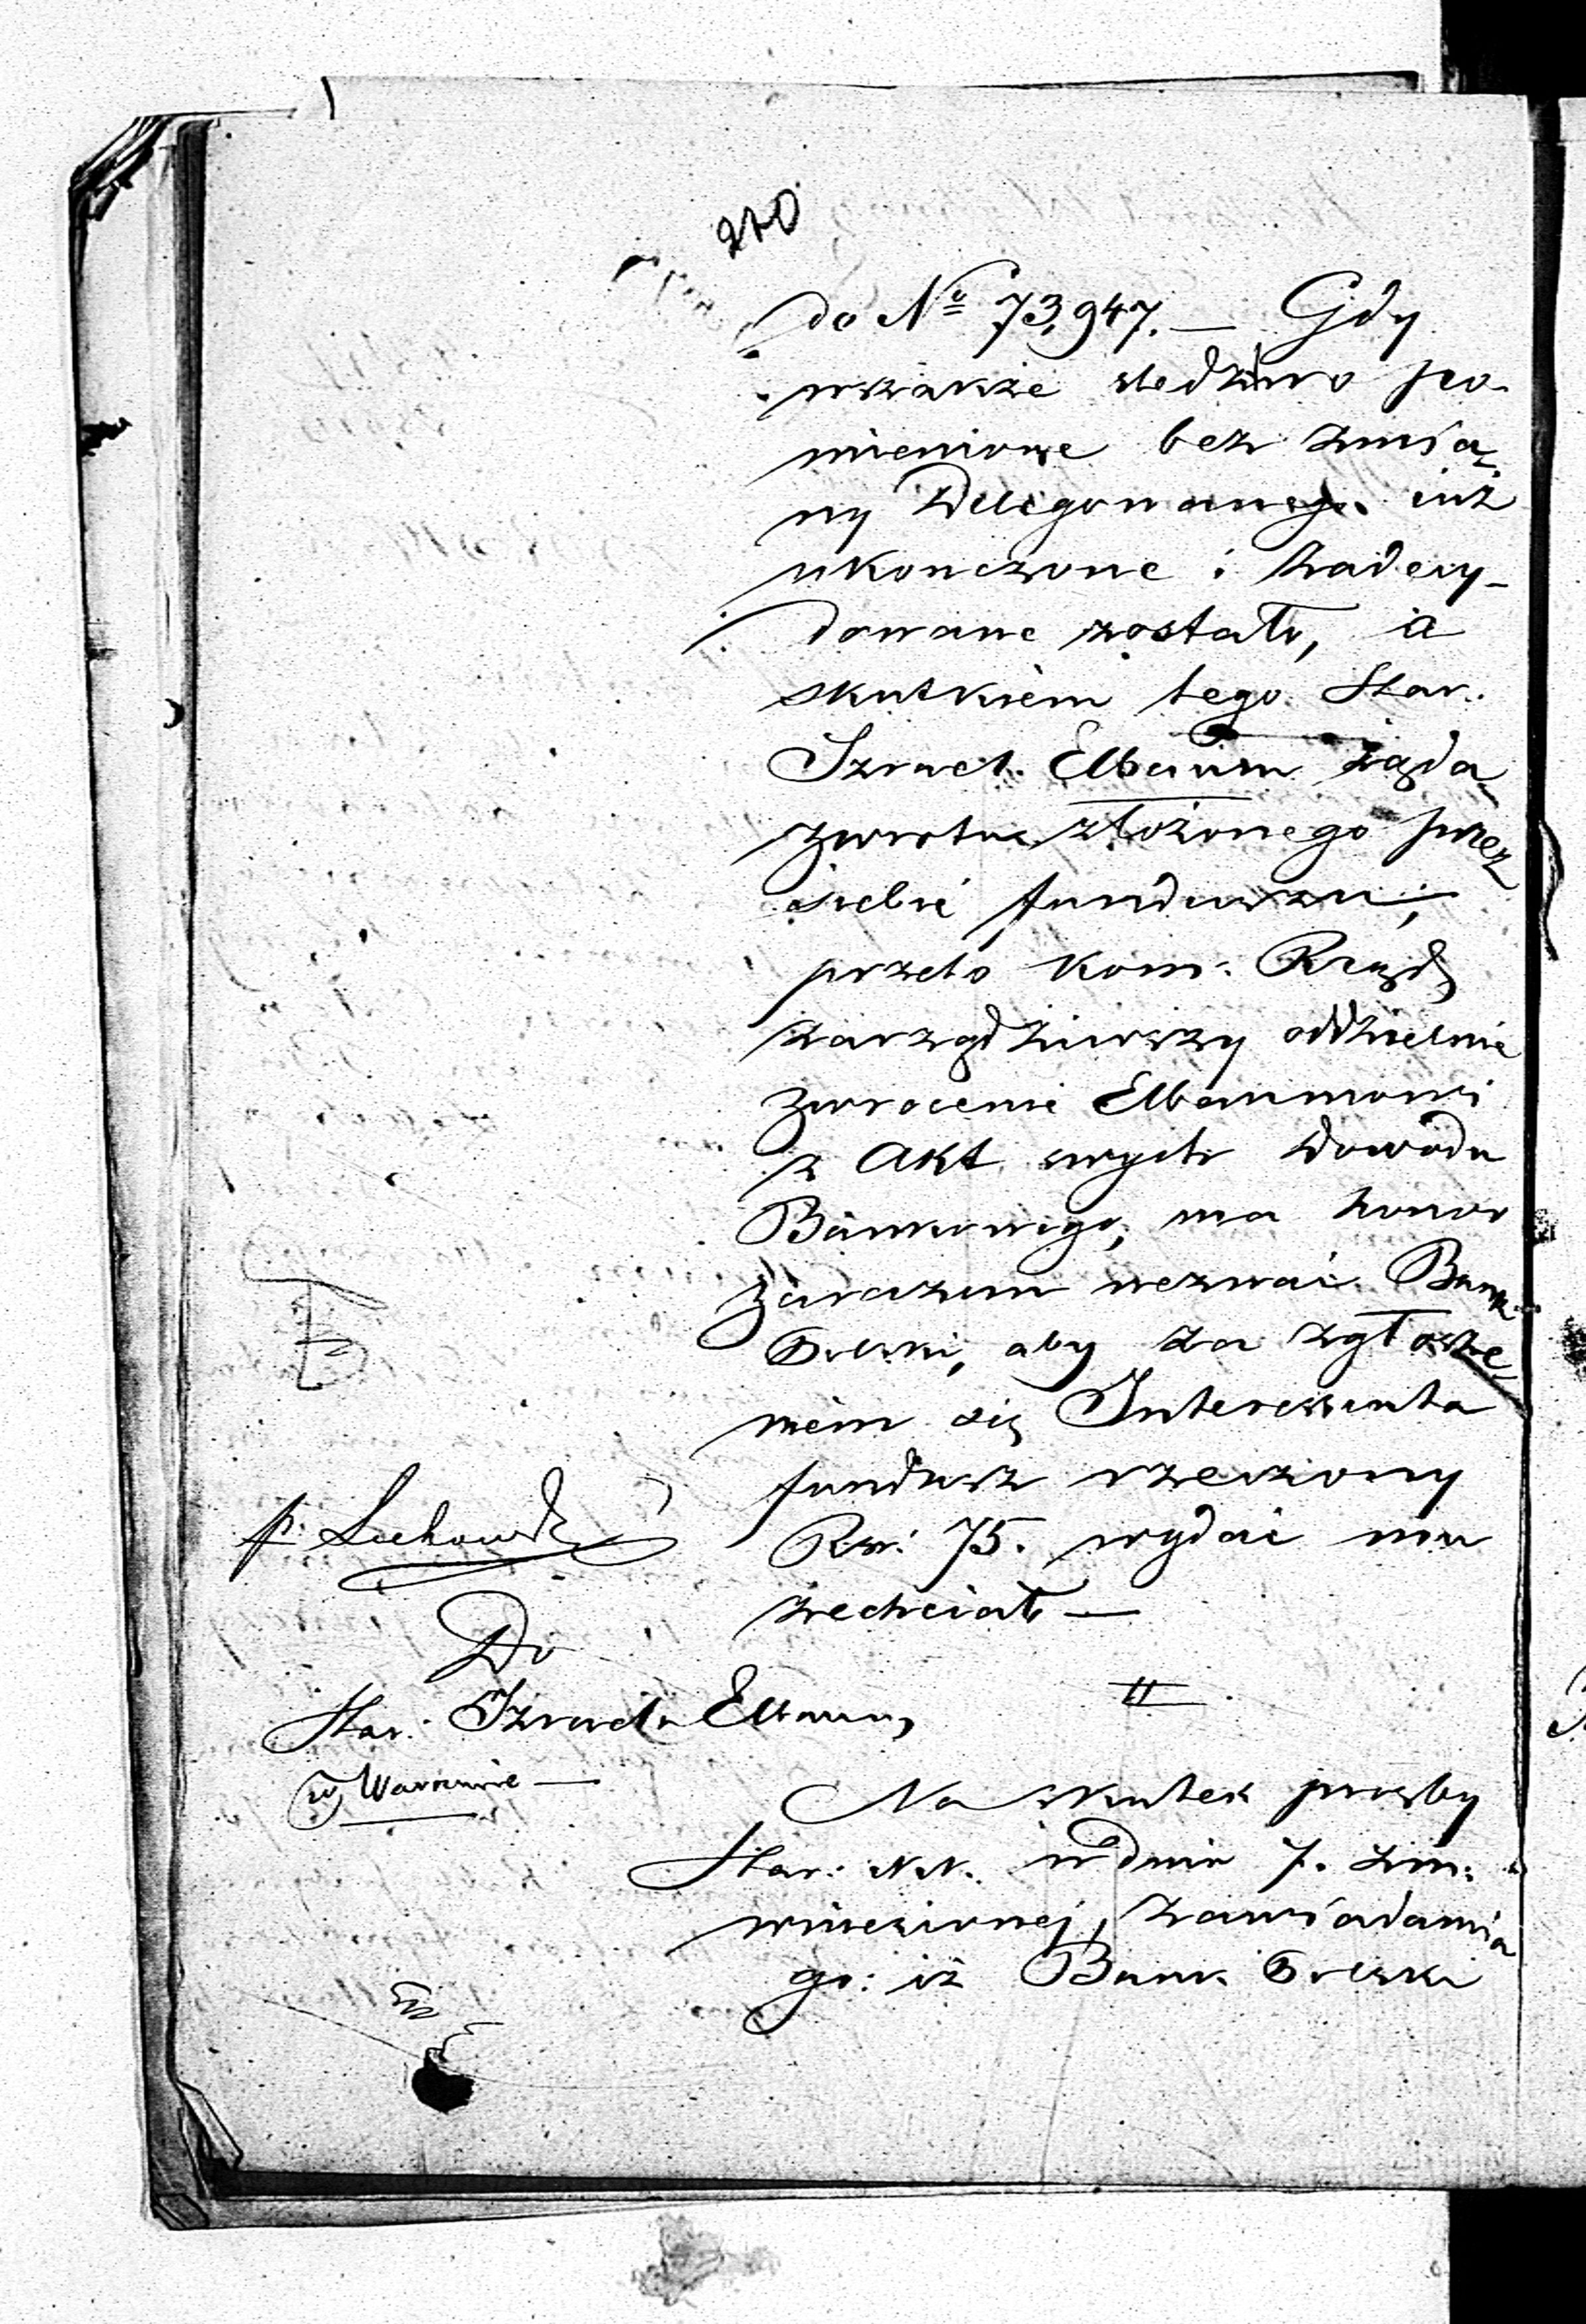 210
do No 73,947. — Gdy
wszakże śledztwo po-
mienione bez zmia-
ny Delegowanego już
ukończone i zadecy-
dowane zostało, a
skutkiem tego Star.
Izrael Elbaum żąda
zwrotu złożonego przez
siebie funduszu;
przeto Kom. Rządz
zarządziwszy oddzielnie
zwrócenie Elbaumowi
z Akt swych dowodu
Bankowego, ma honor
zarazem wezwać Bank
Polski, aby za zgłosze-
niem się Interessenta
fundusz rzeczony
Rsr: 75. wydać mu
zechciał —
Do
Star: Izraela Elbaum
w Warszawie —
II
Na skutek prośby
Star: N.N. w dniu 7. z.m.
wniesionej, zawiadamia
go: iż Bank Polski